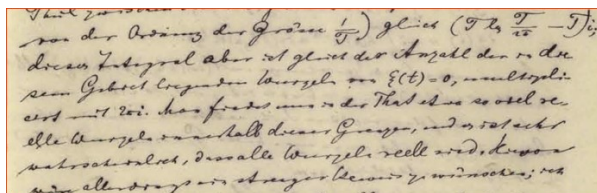 von der Ordnung der Grösse 1/T) gleich (T lg T/2π − T)i;
dieses Integral aber ist gleich der Anzahl der in die-
sem Gebiet liegenden Wurzeln von ξ(t)=0, multiplici-
cirt mit 2πi. Man findet nun in der That etwa so viel re-
elle Wurzeln innerhalb dieser Grenzen, und es ist sehr
wahrscheinlich, dass alle Wurzeln reell sind. Hievon
wäre allerdings ein strenger Beweis zu wünschen; ich